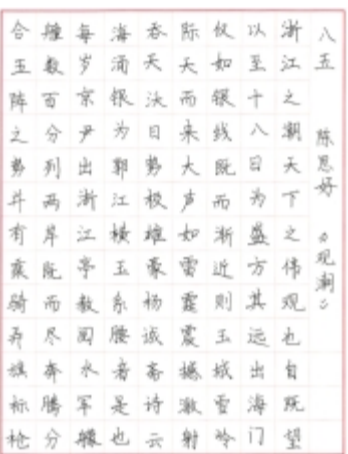 八五 陈思好 《观潮》
浙江之潮天下之伟观也自既望
以至十八日为盛方其远出海门
仅如银线既而渐近则玉城雪岭
际天而来大声如雷霆震撼激射
吞天沃日势极雄豪杨诚斋诗云
海涌银为郭江横玉系腰者是也
每岁京尹出浙江亭教阅水军艨
艟数百分列两岸既而尽奔腾分
合五阵之势并有乘骑弄旗标枪